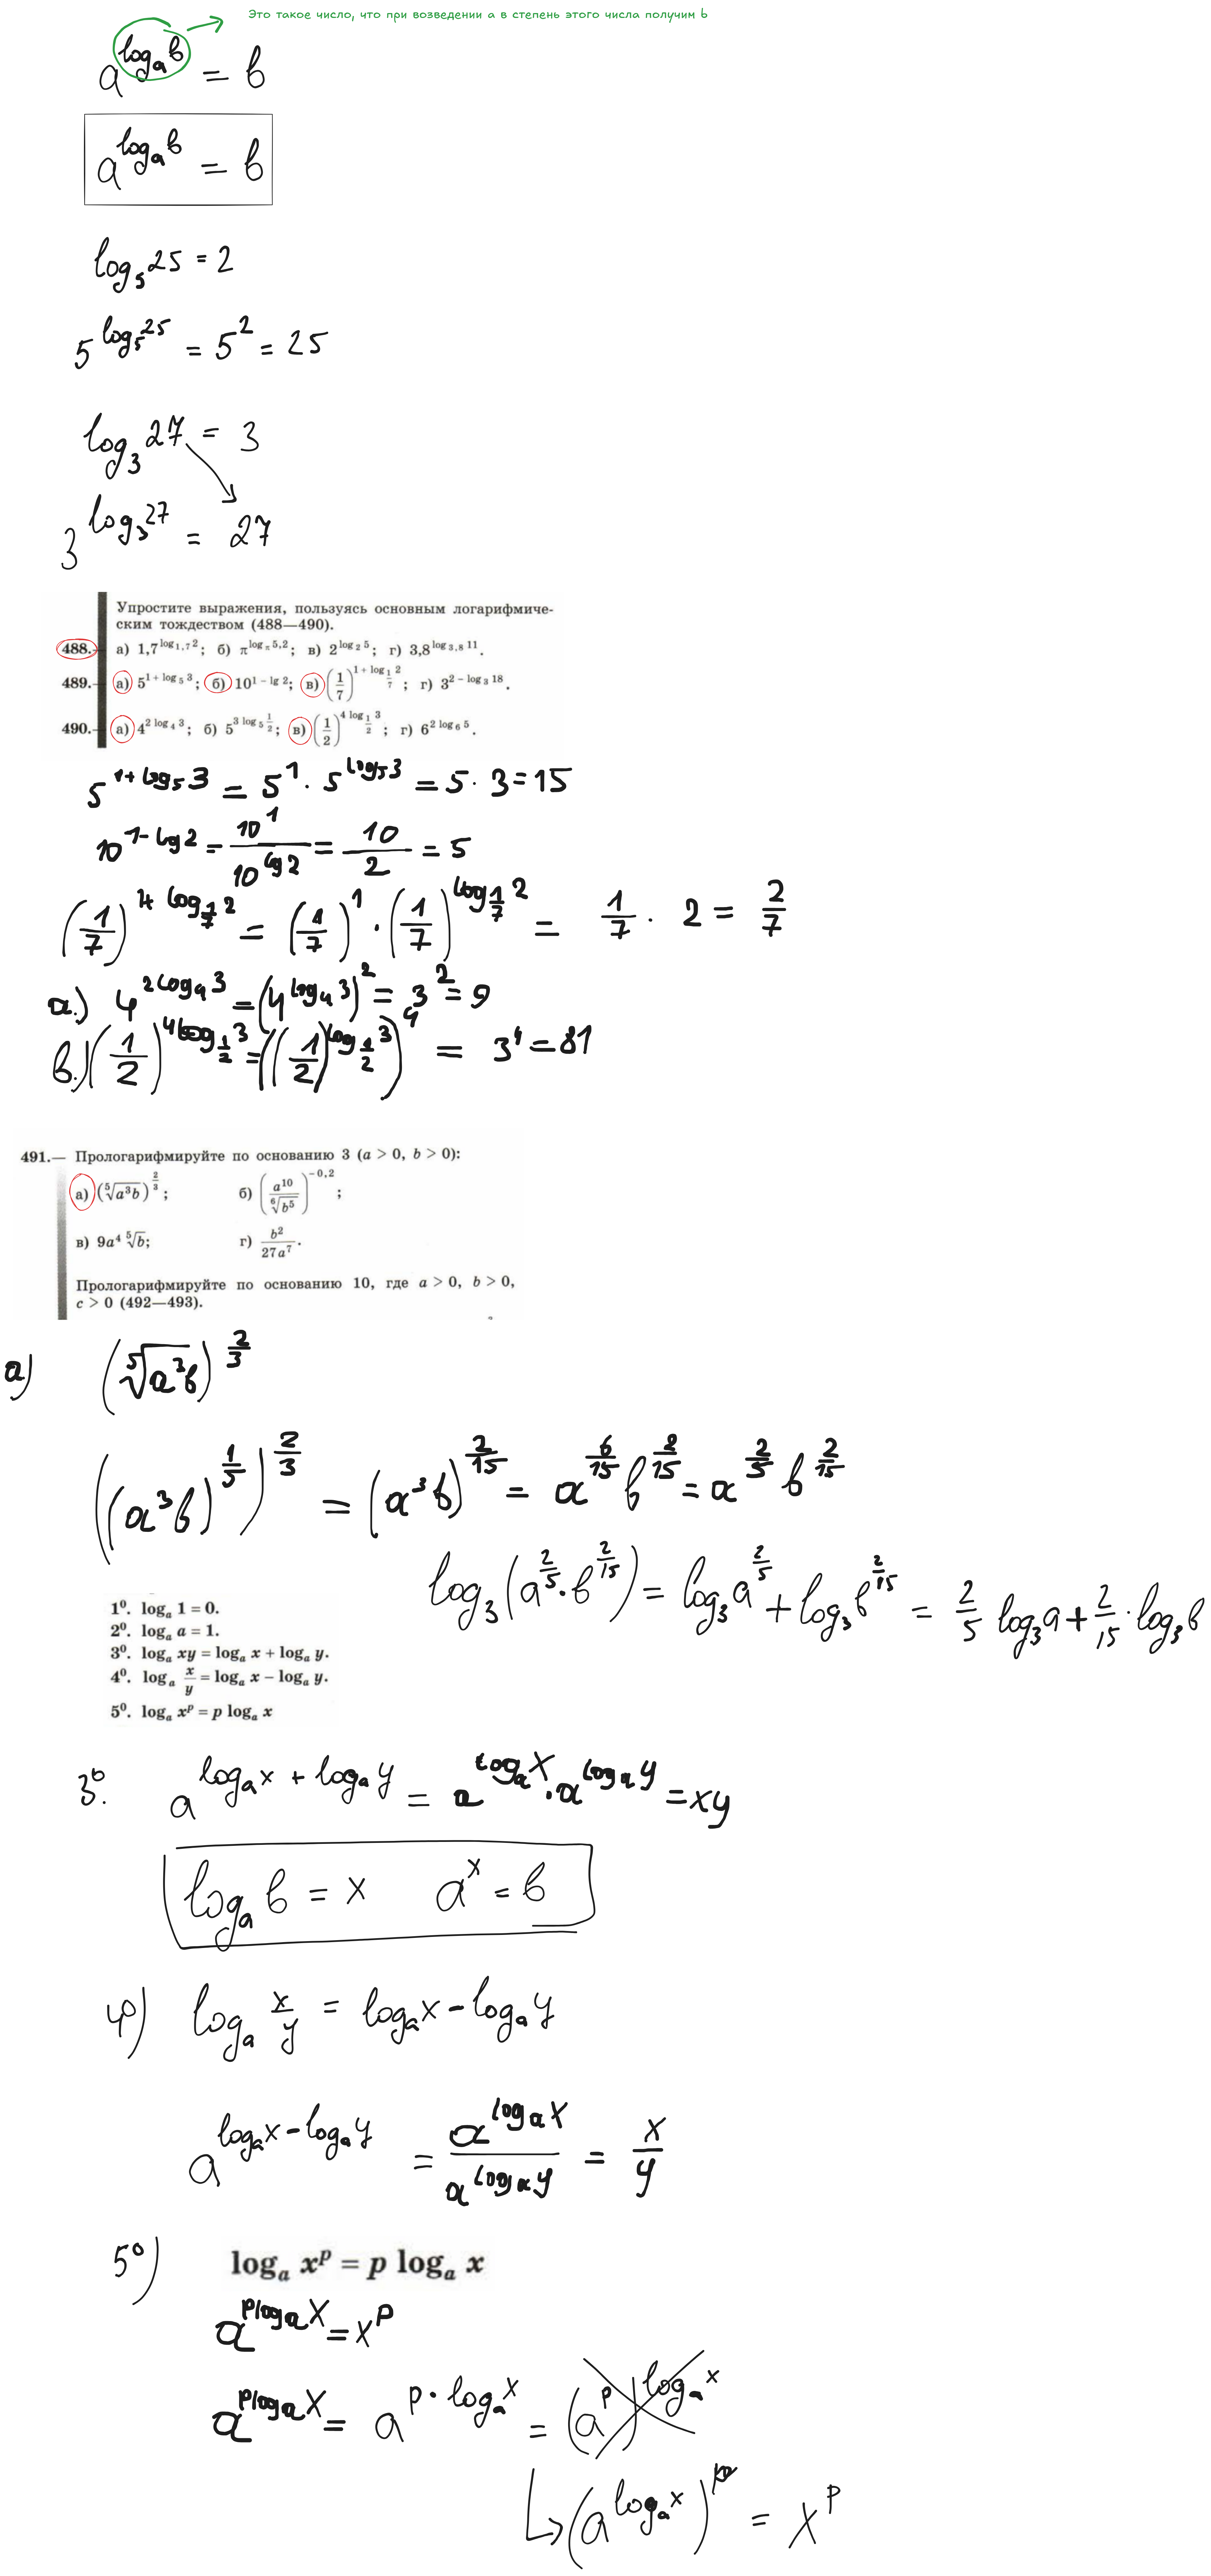 Это такое число, что при возведении a в степень этого числа получим b
a^{log_a b} = b
a^{log_a b} = b
log_5 25 = 2
5^{log_5 25} = 5^2 = 25
log_3 27 = 3
3^{log_3 27} = 27
Упростите выражения, пользуясь основным логарифмиче-
ским тождеством (488—490).
488.— а) 1,7^{log_{1,7} 2}; б) π^{log_π 5,2}; в) 2^{log_2 5}; г) 3,8^{log_{3,8} 11}.
489.— а) 5^{1 + log_5 3}; б) 10^{1 - lg 2}; в) (1/7)^{1 + log_{1/7} 2}; г) 3^{2 - log_3 18}.
490.— а) 4^{2 log_4 3}; б) 5^{3 log_5 1/2}; в) (1/2)^{4 log_{1/2} 3}; г) 6^{2 log_6 5}.
5^{1+log_5 3} = 5^1 · 5^{log_5 3} = 5 · 3 = 15
10^{1-lg 2} = 10^1/10^{lg 2} = 10/2 = 5
(1/7)^{1+ log_{1/7} 2} = (1/7)^1 · (1/7)^{log_{1/7} 2} = 1/7 · 2 = 2/7
а.) 4^{2log_4 3} = (4^{log_4 3})^2 = 3^2 = 9
в.) (1/2)^{4log_{1/2} 3} = ((1/2)^{log_{1/2} 3})^4 = 3^4 = 81
491.— Прологарифмируйте по основанию 3 (a > 0, b > 0):
а) (⁵√(a^3 b))^{2/3}; б) (a^{10}/⁶√(b^5))^{-0,2};
в) 9a^4 ⁵√b; г) b^2/27a^7.
Прологарифмируйте по основанию 10, где a > 0, b > 0,
c > 0 (492—493).
а) (⁵√(a^3 b))^{2/3}
((a^3 b)^{1/5})^{2/3} = (a^3 b)^{2/15} = a^{6/15} b^{2/15} = a^{2/5} b^{2/15}
log_3 (a^{2/5} · b^{2/15}) = log_3 a^{2/5} + log_3 b^{2/15} = 2/5 log_3 a + 2/15 · log_3 b
1⁰. log_a 1 = 0.
2⁰. log_a a = 1.
3⁰. log_a xy = log_a x + log_a y.
4⁰. log_a x/y = log_a x - log_a y.
5⁰. log_a x^p = p log_a x
3⁰. a^{log_a x + log_a y} = a^{log_a x} · a^{log_a y} = xy
log_a b = x a^x = b
4⁰) log_a x/y = log_a x - log_a y
a^{log_a x - log_a y} = a^{log_a x}/a^{log_a y} = x/y
5⁰) log_a x^p = p log_a x
a^{p log_a x} = x^p
a^{p log_a x} = a^{p · log_a x} = (a^p)^{log_a x}
(a^{log_a x})^p = x^p